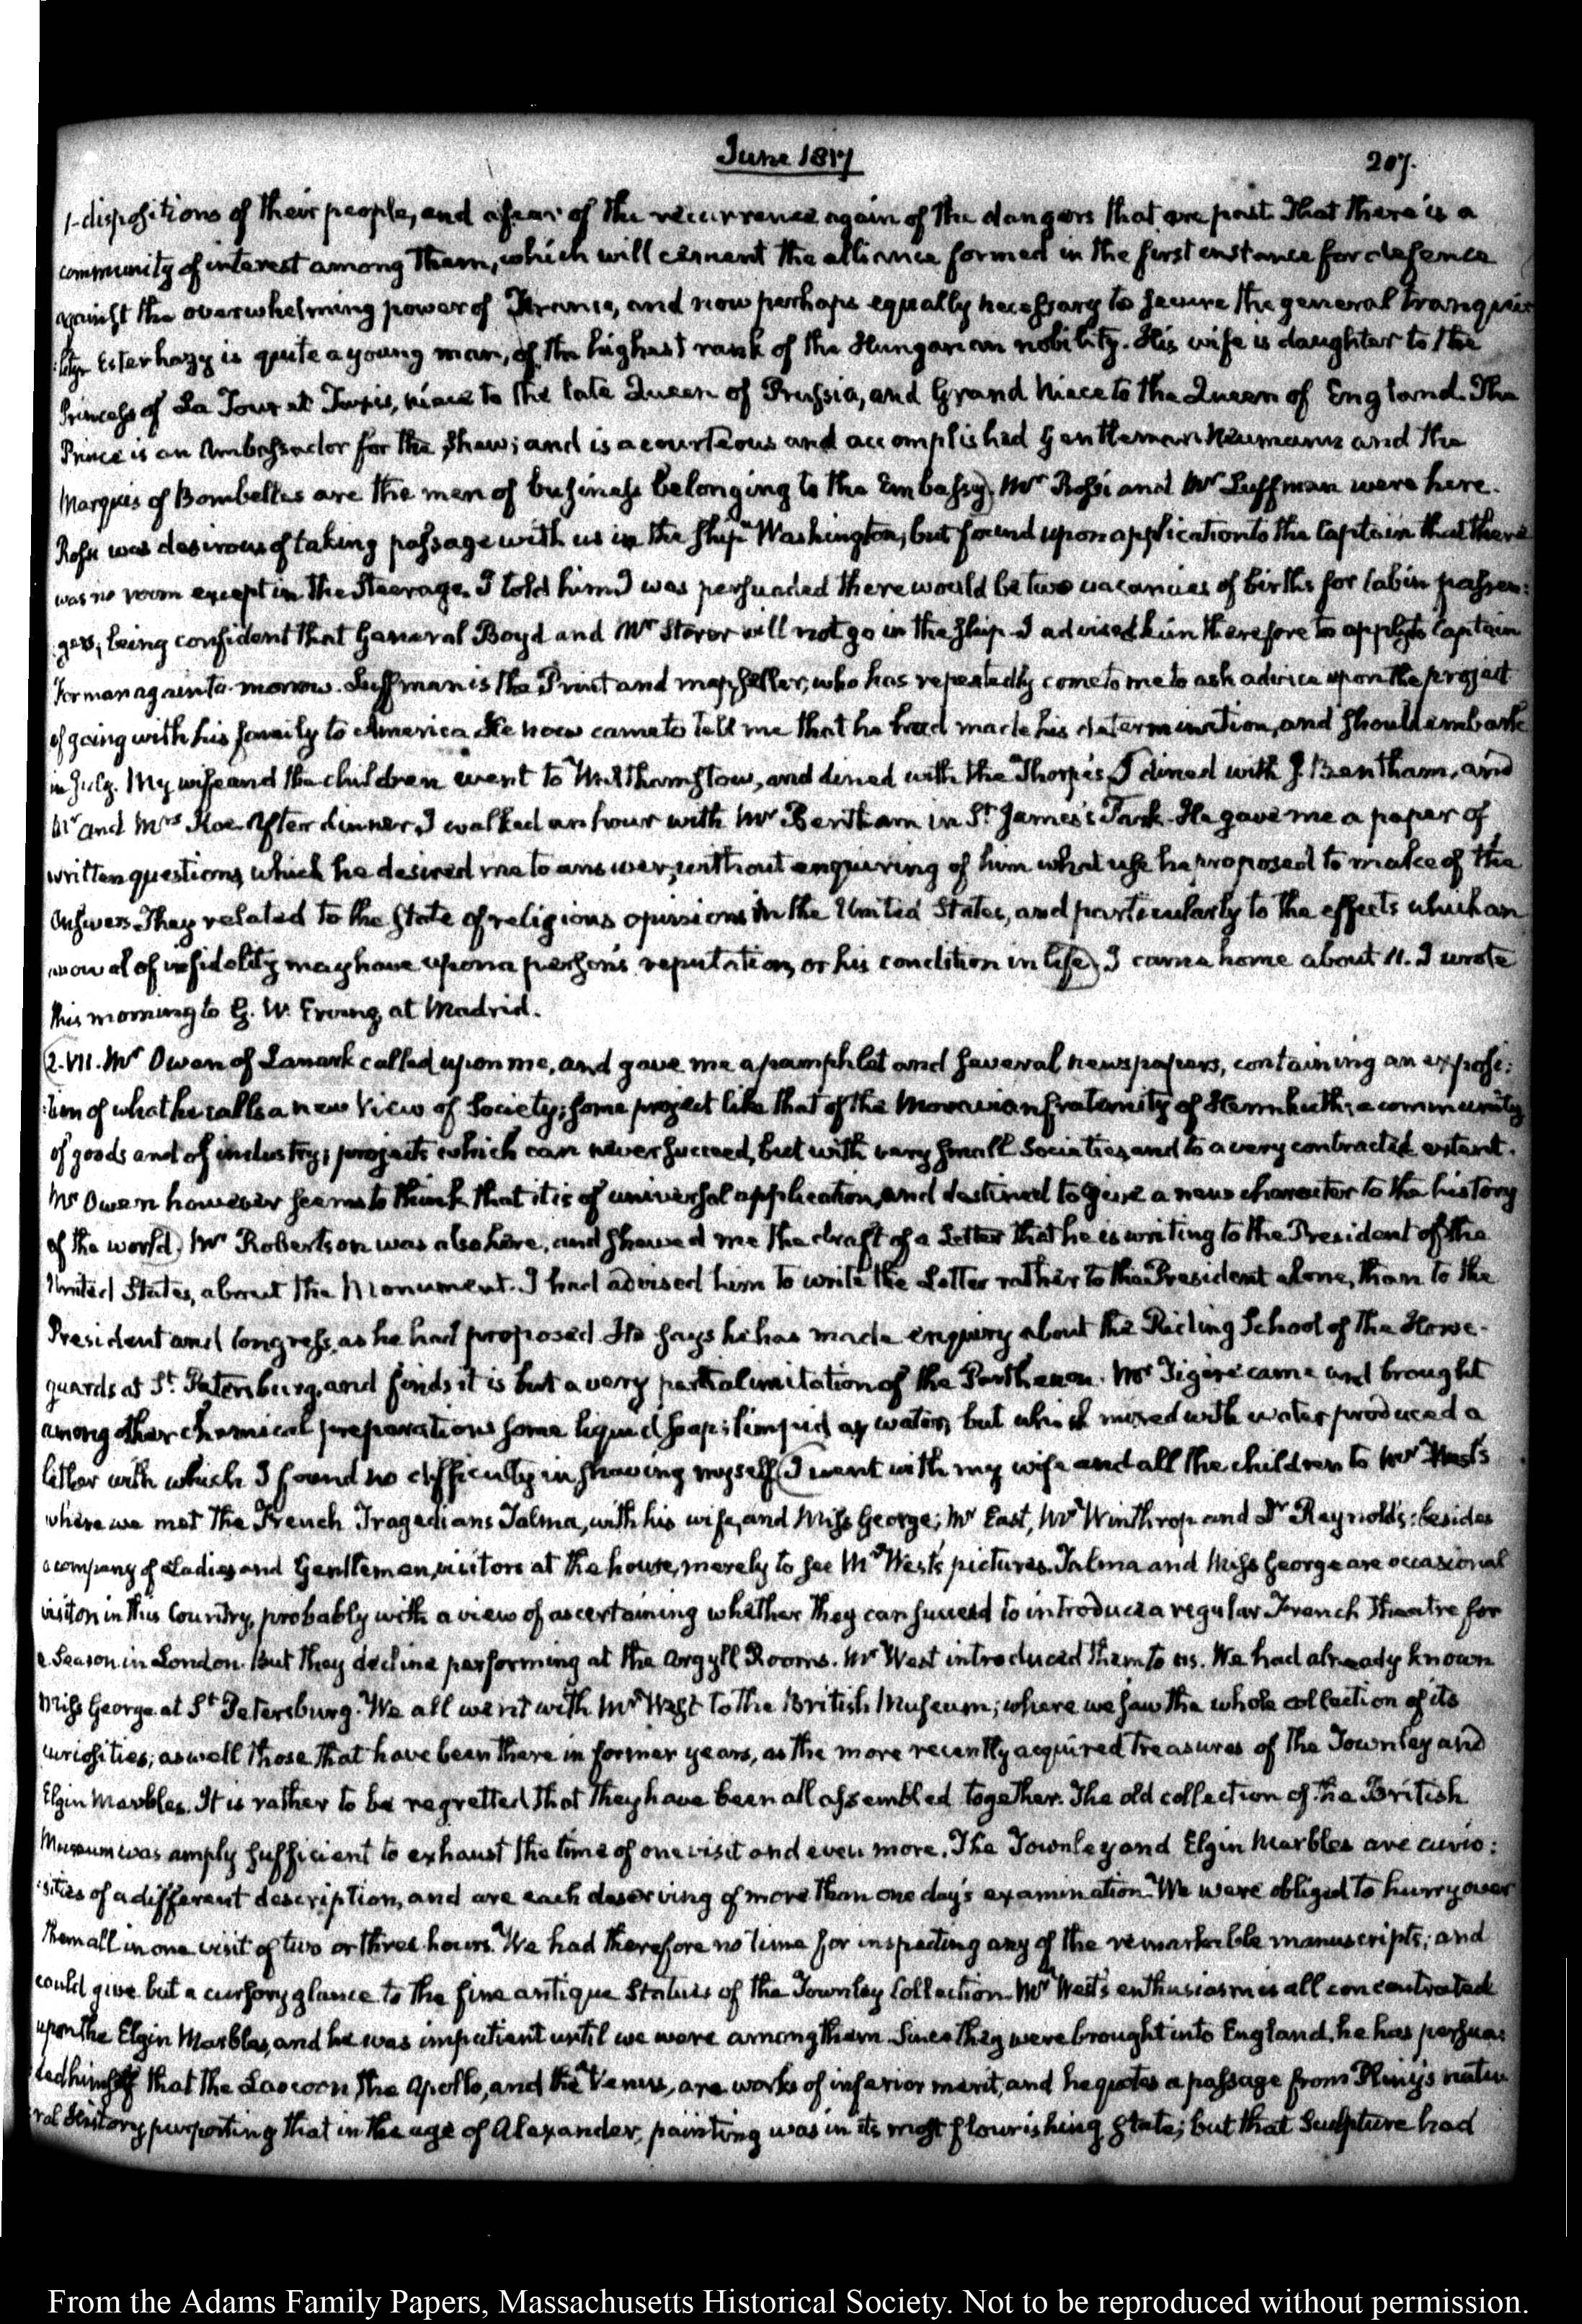 June 1817
207.
1-dispositions of their people, and a fear of the recurrence again of the dangers that are past. That there is a
community of interest among them, which will cement the alliance formed in the first instance for defence
against the overwhelming power of France, and now perhaps equally necessary to secure the general tranquil
:lity. Esterhazy is quite a young man, of the highest rank of the Hungarian nobility. His wife is daughter to the
Princess of La Tour et Taxis, niece to the late Queen of Prussia, and Grand Niece to the Queen of England. The
Prince is an Ambassador for the Shew; and is a courteous and accomplished Gentleman. Neumann and the
Marquis of Bombelles are the men of business belonging to the Embassy). Mr Rossi and Mr Luffman were here.
Rossi was desirous of taking passage with us in the ship Washington, but found upon application to the Captain that there
was no room except in the Steerage. I told him I was persuaded there would be two vacancies of births for Cabin passen:
:gers; being confident that General Boyd and Mr Storer will not go in the ship. I advised him therefore to apply to Captain
Forman again to-morrow. Luffman is the Print and map-seller, who has repeatedly come to me to ask advice upon the project
of going with his family to America. He now came to tell me that he had made his determination, and should embark
in July. My wife and the children went to Walthamstow, and dined with the Thorp's. (I dined with J. Bentham, and
Mr and Mrs Koe. After dinner, I walked an hour with Mr Bentham in St James's Park. He gave me a paper of
written questions, which he desired me to answer, without enquiring of him what use he proposed to make of the
answers. They related to the state of religious opinions in the United States, and particularly to the effects which an
avowal of infidelity may have upon a person's reputation, or his condition in life). I came home about 11. I wrote
this morning to G. W. Erving, at Madrid.
(2. VII. Mr Owen of Lanark called upon me, and gave me a pamphlet and several newspapers, containing an exposi:
:tion of what he calls a new View of Society; some project like that of the Moravian fraternity of Hernhuth; a community
of goods and of industry; projects which can never succeed, but with very small Societies, and to a very contracted extent.
Mr Owen however seems to think that it is of universal application, and destined to give a new character to the history
of the world). Mr Robertson was also here, and shewed me the draft of a Letter that he is writing to the President of the
United States, about the Monument. I had advised him to write the Letter rather to the President alone, than to the
President and Congress, as he had proposed. He says he has made enquiry about the Riding School of the Horse-
guards at St. Petersburg, and finds it is but a very partial imitation of the Parthenon. Mr Tigere came and brought
among other chemical preparations some liquid soap; limpid as water, but which mixed with water produced a
lather with which I found no difficulty in shaving myself. (I went with my wife and all the children to Mr West's
where we met the French Tragedians Talma, with his wife, and Miss George; Mr East, Mr Winthrop and Dr Reynolds: besides
a company of Ladies and Gentlemen, visitors at the house, merely to see Mr West's pictures. Talma and Miss George are occasional
visitors in this Country, probably with a view of ascertaining whether they can succeed to introduce a regular French Theatre for
a Season in London. But they decline performing at the Argyll Rooms. Mr West introduced them to us. We had already known
Miss George at St Petersburg. We all went with Mr West to the British Museum; where we saw the whole collection of its
curiosities; as well those that have been there in former years, as the more recently acquired treasures of the Townley and
Elgin Marbles. It is rather to be regretted that they have been all assembled together. The old collection of the British
Museum was amply sufficient to exhaust the time of one visit and even more. The Townley and Elgin Marbles are curio:
:sities of a different description, and are each deserving of more than one day's examination. We were obliged to hurry over
them all in one visit of two or three hours. We had therefore no time for inspecting any of the remarkable manuscripts; and
could give but a cursory glance to the fine antique Statues of the Townley Collection. Mr West's enthusiasm is all concentrated
upon the Elgin Marbles, and he was impatient until we were among them. Since they were brought into England, he has persua:
:ded himself that the Laocoon, the Apollo, and the Venus, are works of inferior merit; and he quotes a passage from Pliny's natu
:ral History purporting that in the age of Alexander, painting was in its most flourishing state; but that Sculpture had
From the Adams Family Papers, Massachusetts Historical Society. Not to be reproduced without permission.